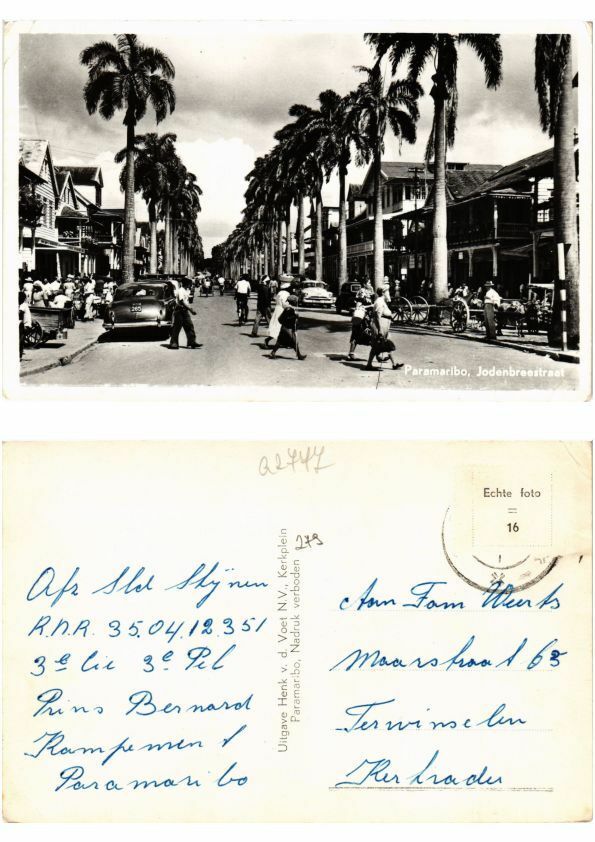 265
Paramaribo, Jodenbreestraat
Q2747
Echte foto
=
16
279
Uitgave Henk v. d. Voet N.V., Kerkplein
Paramaribo, Nadruk verboden
Afz Sld Stijnen
R.N.R. 35.04.12.351
3e Cie 3e Pel
Prins Bernard
Kampement
Paramaribo
Aan Fam Weerts
Maarstraat 63
Terwinselen
Kerkrade